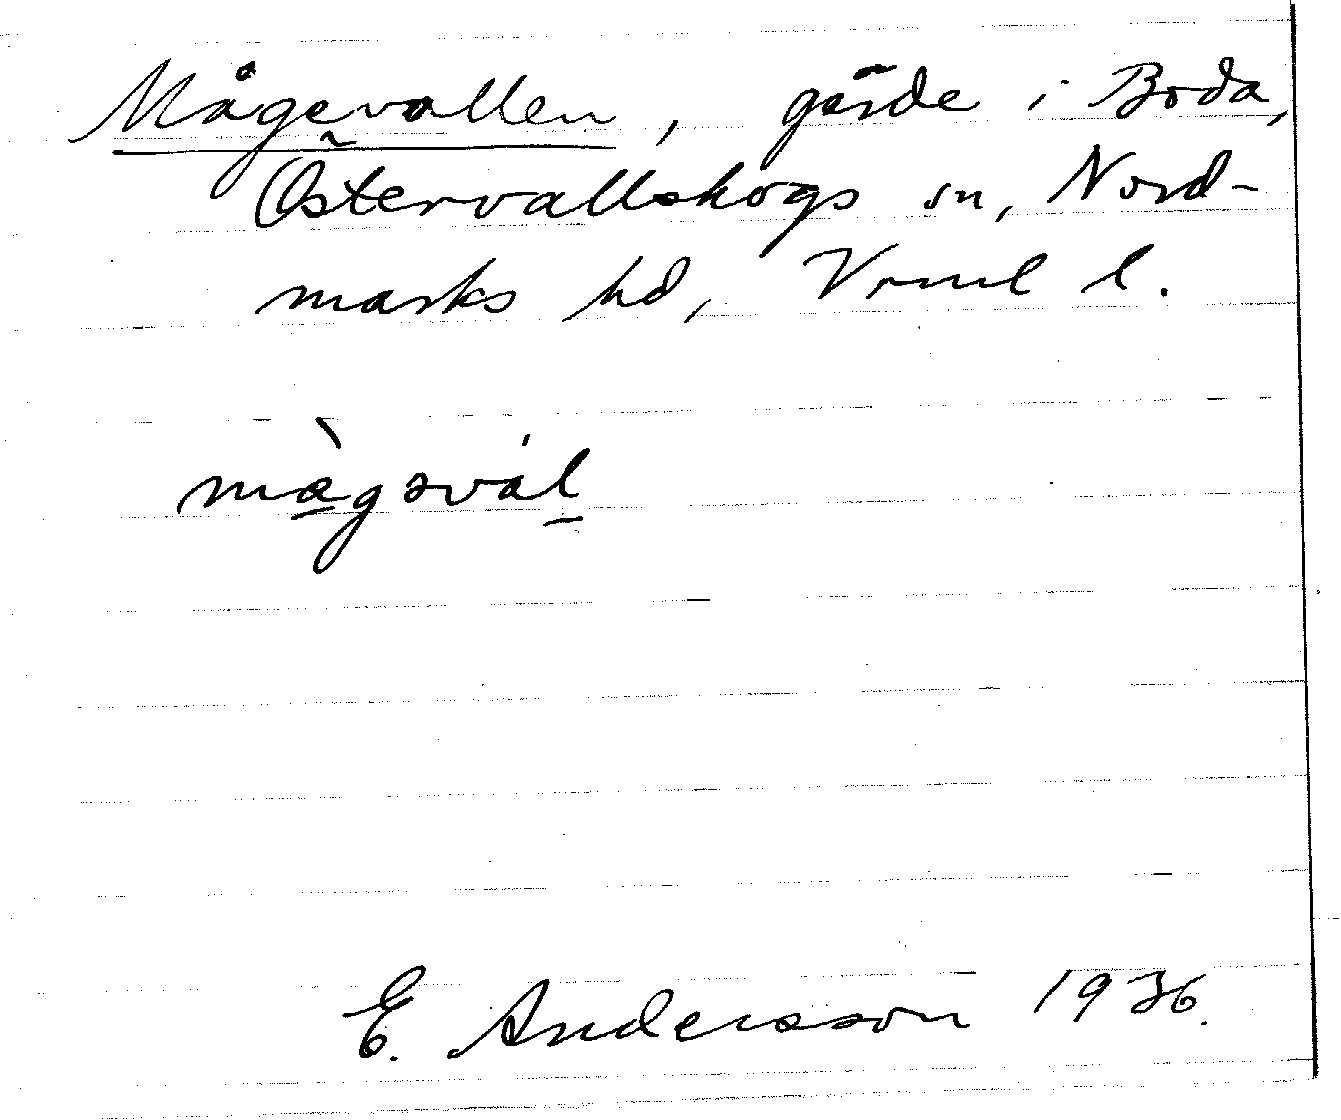 Mågevallen, gärde i Boda,
Östervallskogs sn, Nord-
marks hd, Vrml l.
mågəvál
E. Andersson 1936.